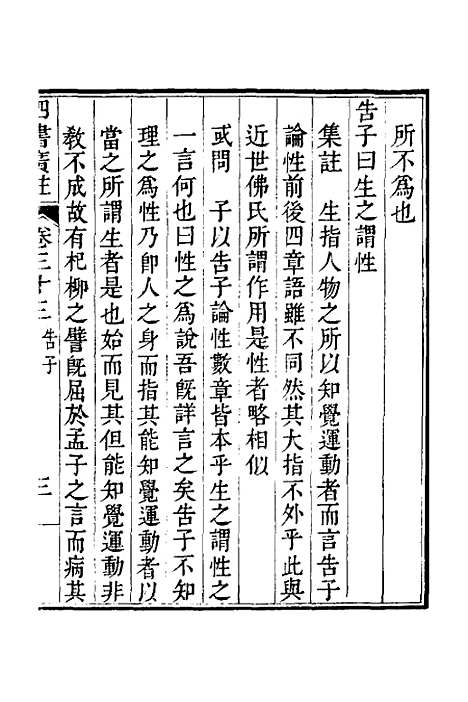 所不爲也
告子曰生之謂性
集註　生指人物之所以知覺運動者而言告子
論性前後四章語雖不同然其大指不外乎此與
近世佛氏所謂作用是性者略相似
或問　子以告子論性數章皆本乎生之謂性之
一言何也曰性之爲說吾旣詳言之矣告子不知
理之爲性乃卽人之身而指其能知覺運動者以
當之所謂生者是也始而見其但能知覺運動非
敎不成故有杞柳之譬旣屈於孟子之言而病其
四書廣註　卷三十三　告子　三